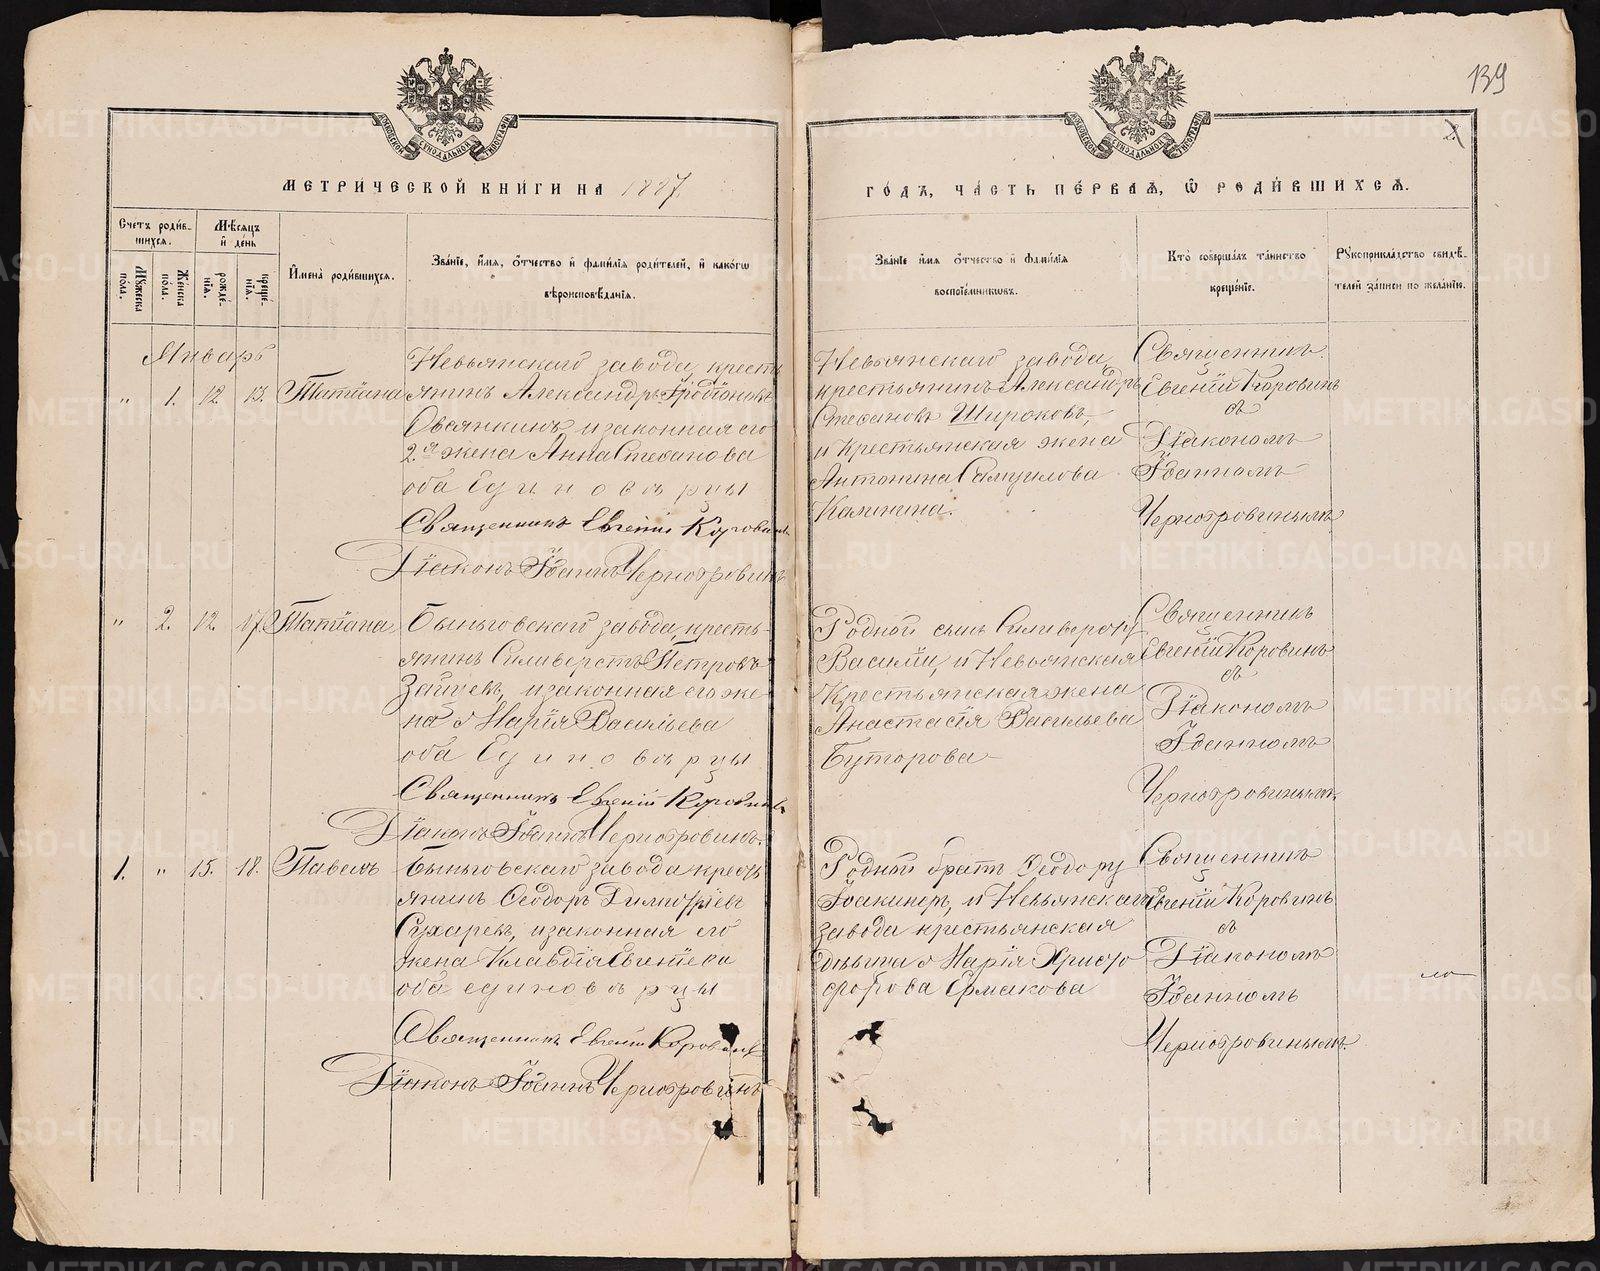 139
2
МЕТРИЧЕСКОЙ КНИГИ НА 1887.
ГОДЪ, ЧАСТЬ ПЕРВАЯ, Ѡ РОДИВШИХСЯ.
Счетъ родив-
шихся.
Мѣсяцъ
и день
Мужеска
пола.
Женска
пола.
рожде-
нія.
креще-
нія.
Имена родившихся.
Званіе, имя, отчество и фамилія родителей, и какогѡ
вѣроисповѣданія.
Званіе имя отчество и фамилія
воспріемниковъ.
Кто совершалъ таинство
крещеніе.
Рукоприкладство свидѣ-
телей записи по желанію.
Январь
" 1. 12. 13. Татіана
Невьянскаго завода, кресть
янинъ Александръ Родіоновъ
Овсянкинъ, и законная его
2.я жена Анна Стефанова
оба Единовѣрцы
Священникъ Евгеній Коровинъ
Діаконъ Іоаннъ Черноѳровинъ
Невьянскаго завода,
крестьянинъ Александръ
Стефановъ Широковъ,
и Крестьянская жена
Антонина Самуилова
Калинина.
Священникъ
Евгеній Коровинъ
съ
Діакономъ
Іоанномъ
" 2. 12. 17. Татіана
Быньговскаго завода, кресть-
янинъ Силиверстъ Петровъ
Зайцевъ, и законная его же-
на Марія Васильева
оба Единовѣрцы
Священникъ Евгеній Коровинъ
Діаконъ Іоаннъ
Родной сынъ Силиверсту
Василій, и Невьянская
Крестьянская жена
Анастасія Васильева
Буторова
Священникъ
Евгеній Коровинъ
съ
Діакономъ
Іоанномъ
1. " 15. 18. Павелъ
Быньговскаго завода крестъ
янинъ Ѳеодоръ Димитріевъ
Сухаревъ, и законная его
жена Клавдія Евгеніева
оба единовѣрцы
Священникъ Евгеній Коровинъ
Діаконъ Іоаннъ
Родной братъ Ѳеодору
и Невьянскаго
завода крестьянская
дѣвица Марія Христо
форова Ермакова
Священникъ
Евгеній Коровинъ
съ
Діакономъ
Іоанномъ
METRIKI.GASO-URAL.RU